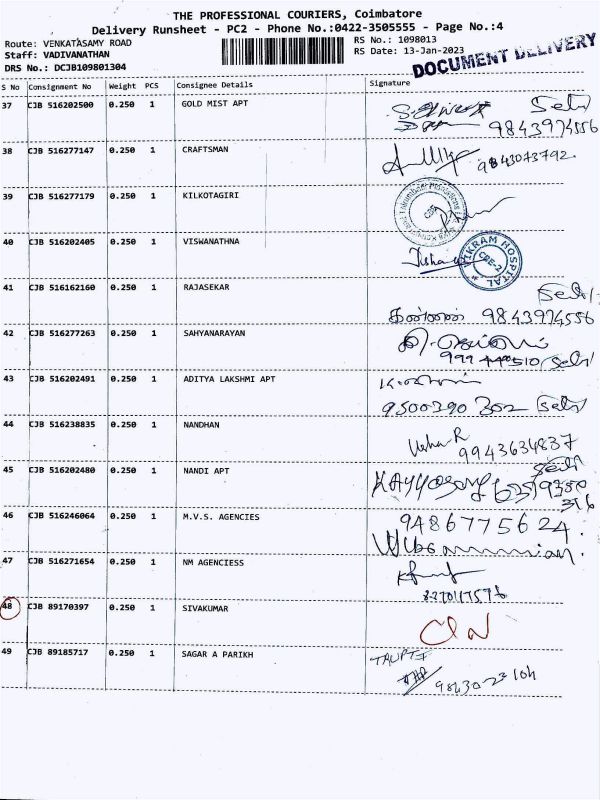 THE PROFESSIONAL COURIERS, Coimbatore
Delivery Runsheet - PC2 - Phone No.:0422-3505555 - Page No.:4
Route: VENKATASAMY ROAD
RS No.: 1098013
Staff: VADIVANATHAN
RS Date: 13-Jan-2023
DRS No.: DCJB109801304
DOCUMENT DELIVERY
S No Consignment No Weight PCS Consignee Details Signature
37 CJB 516202500 0.250 1 GOLD MIST APT
9843974556
38 CJB 516277147 0.250 1 CRAFTSMAN
9843073792
39 CJB 516277179 0.250 1 KILKOTAGIRI
40 CJB 516202405 0.250 1 VISWANATHNA
VIKRAM HOSPITAL
CBE-2
41 CJB 516162160 0.250 1 RAJASEKAR
கண்ணன் 9843974556
42 CJB 516277263 0.250 1 SAHYANARAYAN
43 CJB 516202491 0.250 1 ADITYA LAKSHMI APT
9500390302
44 CJB 516238835 0.250 1 NANDHAN
Usha R
9943634837
45 CJB 516202480 0.250 1 NANDI APT
46 CJB 516246064 0.250 1 M.V.S. AGENCIES
9486775624
47 CJB 516271654 0.250 1 NM AGENCIESS
48 CJB 89170397 0.250 1 SIVAKUMAR
49 CJB 89185717 0.250 1 SAGAR A PARIKH